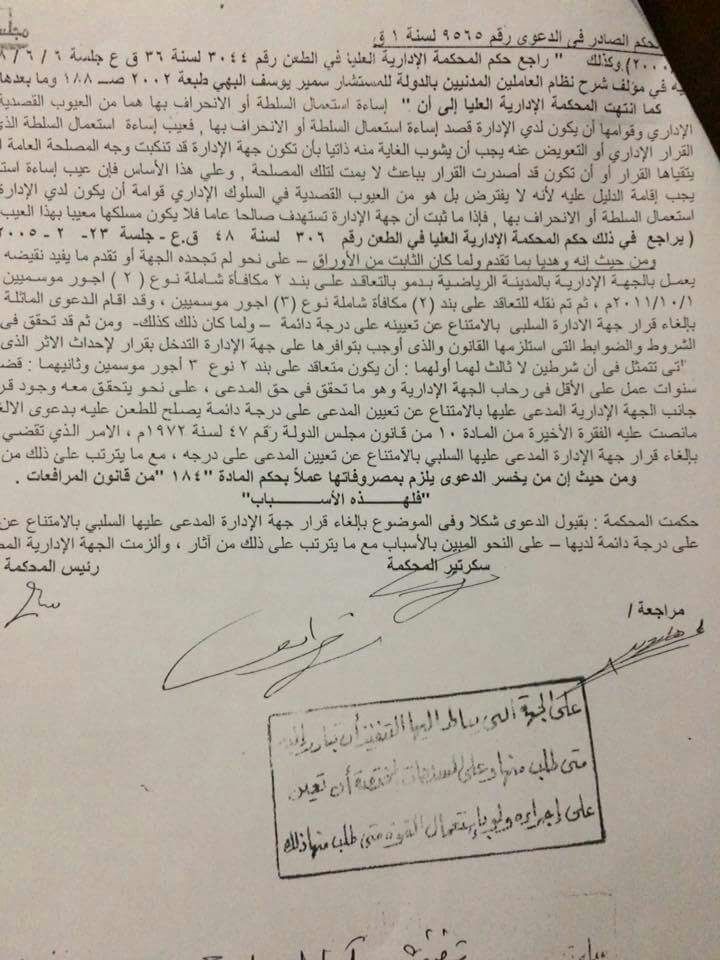 حكم الصادر فى الدعوى رقم ٩٥٦٥ لسنة ١ ق
٢٠٠٠) وكذلك " راجع حكم المحكمة الإدارية العليا في الطعن رقم ٣٠٤٤ لسنة ٣٦ ق ع جلسة ٦ / ٦ /
في مؤلف شرح نظام العاملين المدنيين بالدولة للمستشار سمير يوسف البهي طبعة ٢٠٠٢ صـ ١٨٨ وما بعدها
كما انتهت المحكمة الإدارية العليا إلى أن " إساءة استعمال السلطة أو الانحراف بها هما من العيوب القصدية
الإداري وقوامها أن يكون لدي الإدارة قصد إساءة استعمال السلطة أو الانحراف بها , فعيب إساءة استعمال السلطة الذي
القرار الإداري أو التعويض عنه يجب أن يشوب الغاية منه ذاتيا بأن تكون جهة الإدارة قد تنكبت وجه المصلحة العامة
يتقياها القرار أو أن تكون قد أصدرت القرار بباعث لا يمت لتلك المصلحة , وعلي هذا الأساس فإن عيب إساءة
يجب إقامة الدليل عليه لأنه لا يفترض بل هو من العيوب القصدية في السلوك الإداري قوامة أن يكون لدي الإدارة
استعمال السلطة أو الانحراف بها , فإذا ما ثبت أن جهة الإدارة تستهدف صالحا عاما فلا يكون مسلكها معيبا بهذا العيب
( يراجع في ذلك حكم المحكمة الإدارية العليا في الطعن رقم ٣٠٦ لسنة ٤٨ ق.ع - جلسة ٢٣- ٢ - ٢٠٠٥
ومن حيث إنه وهديا بما تقدم ولما كان الثابت من الأوراق – على نحو لم تجحده الجهة أو تقدم ما يفيد نقيضه
يعمل بالجهة الإدارية بالمدينة الرياضية بدمو بالتعاقد على بند ٢ مكافأة شاملة نوع ( ٢ ) اجور موسميين
٢٠١١/١٠/١م ، ثم تم نقله للتعاقد على بند (٢) مكافأة شاملة نوع (٣) اجور موسميين ، وقد اقام الدعوى الماثلة
بإلغاء قرار جهة الادارة السلبى بالامتناع عن تعيينه على درجة دائمة – ولما كان ذلك كذلك- ومن ثم قد تحقق فى
الشروط والضوابط التى استلزمها القانون والذى أوجب بتوافرها على جهة الإدارة التدخل بقرار لإحداث الاثر الذى
"تى تتمثل فى أن شرطين لا ثالث لهما أولهما : أن يكون متعاقد على بند ٢ نوع ٣ أجور موسمين وثانيهما :
سنوات عمل على الأقل فى رحاب الجهة الإدارية وهو ما تحقق فى حق المدعى ، على نحو يتحقق معه وجود
جانب الجهة الإدارية المدعى عليها بالامتناع عن تعيين المدعى على درجة دائمة يصلح للطعن عليه بدعوى
مانصت عليه الفقرة الأخيرة من المادة ١٠ من قانون مجلس الدولة رقم ٤٧ لسنة ١٩٧٢م ، الامر الذي تقضي
بإلغاء قرار جهة الإدارة المدعى عليها السلبي بالامتناع عن تعيين المدعى على درجه ، مع ما يترتب على ذلك من
ومن حيث إن من يخسر الدعوى يلزم بمصروفاتها عملاً بحكم المادة "١٨٤ "من قانون المرافعات .
"فلهــذه الأســباب"
حكمت المحكمة : بقبول الدعوى شكلا وفى الموضوع بإلغاء قرار جهة الإدارة المدعى عليها السلبي بالامتناع عن
على درجة دائمة لديها – على النحو المبين بالأسباب مع ما يترتب على ذلك من آثار ، وألزمت الجهة الإدارية
سكرتير المحكمة رئيس المحكمة
مراجعة /
على الجهة التى يناط اليها التنفيذ أن تبادر اليه
متى طلب منها وعلى السلطات المختصة أن تعين
على إجرائه ولو بإستعمال القوة متى طلب منها ذلك